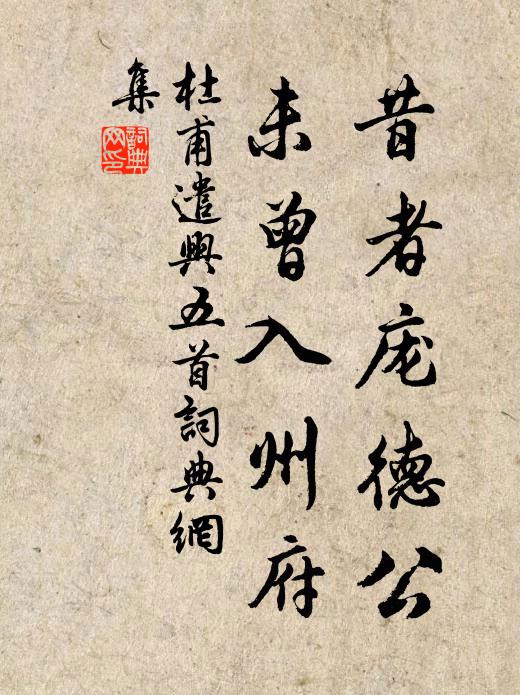 昔者庞德公
未曾入州府
杜甫遣興五首詞典網
集
詞典
网印